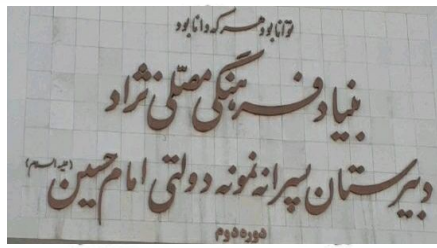 توانا بود هر که دانا بود
بنیاد فرهنگی مصلی نژاد
دبیرستان پسرانه نمونه دولتی امام حسین (علیه السلام)
دوره دوم